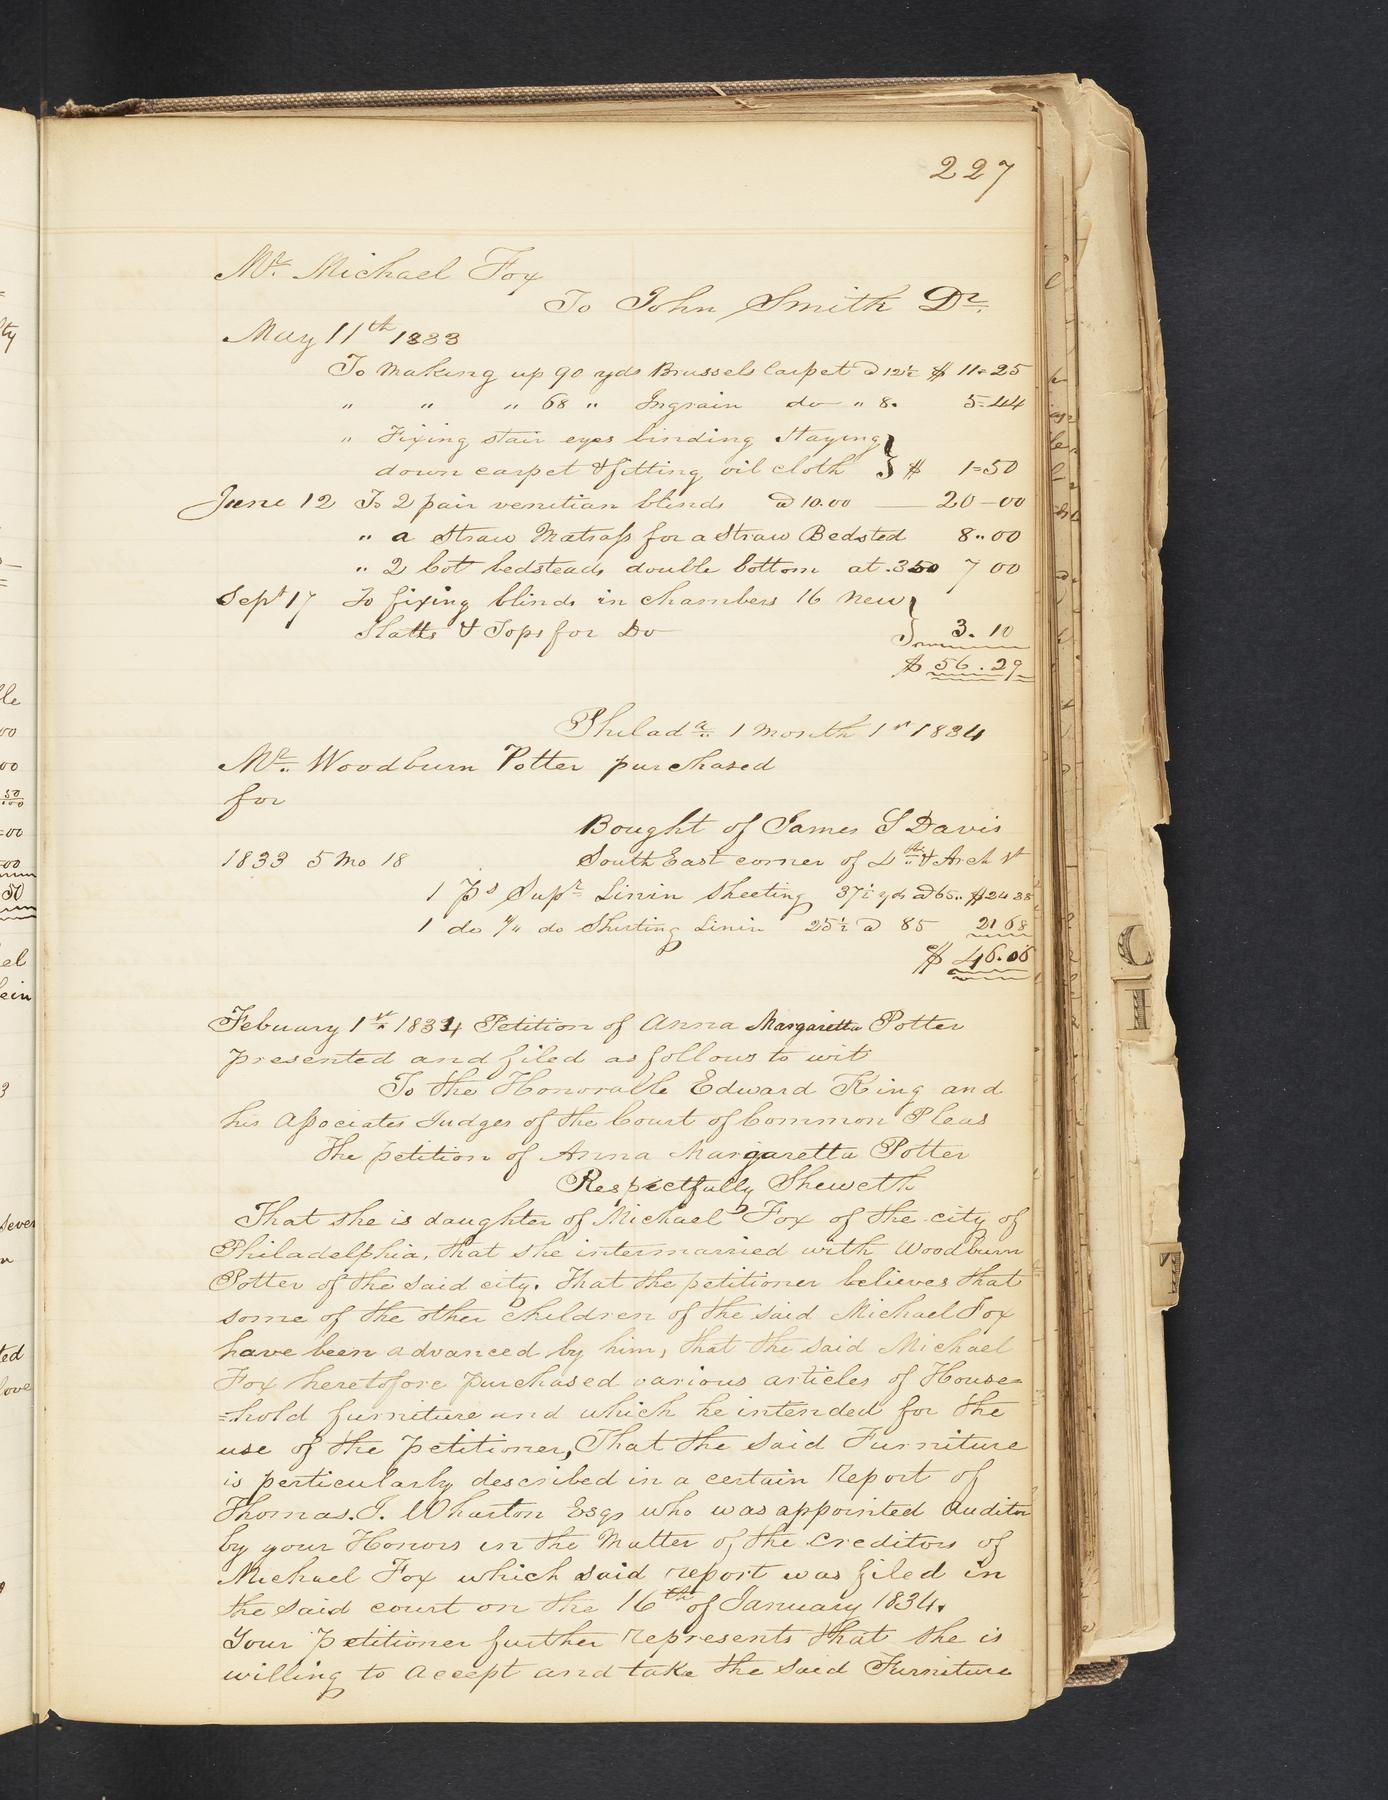 227
Mr. Michael Fox
To John Smith Dr.
May 11th 1833
To making up 90 yds Brussels Carpet @ 12½ $ 11=25
" " " 68 " Ingrain do " 8. 5=44
" Fixing stair eyes binding Staying
down carpet & fitting oil cloth } $ 1=50
June 12 To 2 pair venitian blinds @ 10.00 — 20-00
" a Straw Matrass for a Straw Bedsted 8"00
" 2 Cot bedsteads double bottom at .3 50 7 00
Sept 17 To fixing blinds in chambers 16 New
Slatts & Tops for Do } 3. 10
$ 56.29
Philada. 1 month 1st 1834
Mr. Woodburn Potter purchased
for
Bought of James S Davis
1833 5 Mo 18 South East corner of 4th & Arch St
1 Ps Supr Linin Sheeting 37½ yds @ 65" $24 38
1 do 4/4 do Shirting Linin 25½ @ 85 21 68
$ 46.06
Febuary 1st. 1834 Petition of Anna Margaretta Potter
presented and filed as follows to wit
To the Honorable Edward King and
his Associates Judges of the Court of Common Pleas
The petition of Anna Margaretta Potter
Respectfully Sheweth
That she is daughter of Michael Fox of the city of
Philadelphia, that she intermarried with Woodburn
Potter of the said city. That the petitioner believes that
some of the other children of the said Michael Fox
have been advanced by him, that the said Michael
Fox heretofore purchased various articles of House=
=hold furniture and which he intended for the
use of the petitioner, That the said Furniture
is perticularly described in a certain Report of
Thomas. I. Wharton Esqr who was appointed Auditor
by your Honors in the Matter of the creditors of
Michael Fox which said report was filed in
the said court on the 16th of January 1834.
Your petitioner further represents that she is
willing to accept and take the said Furniture